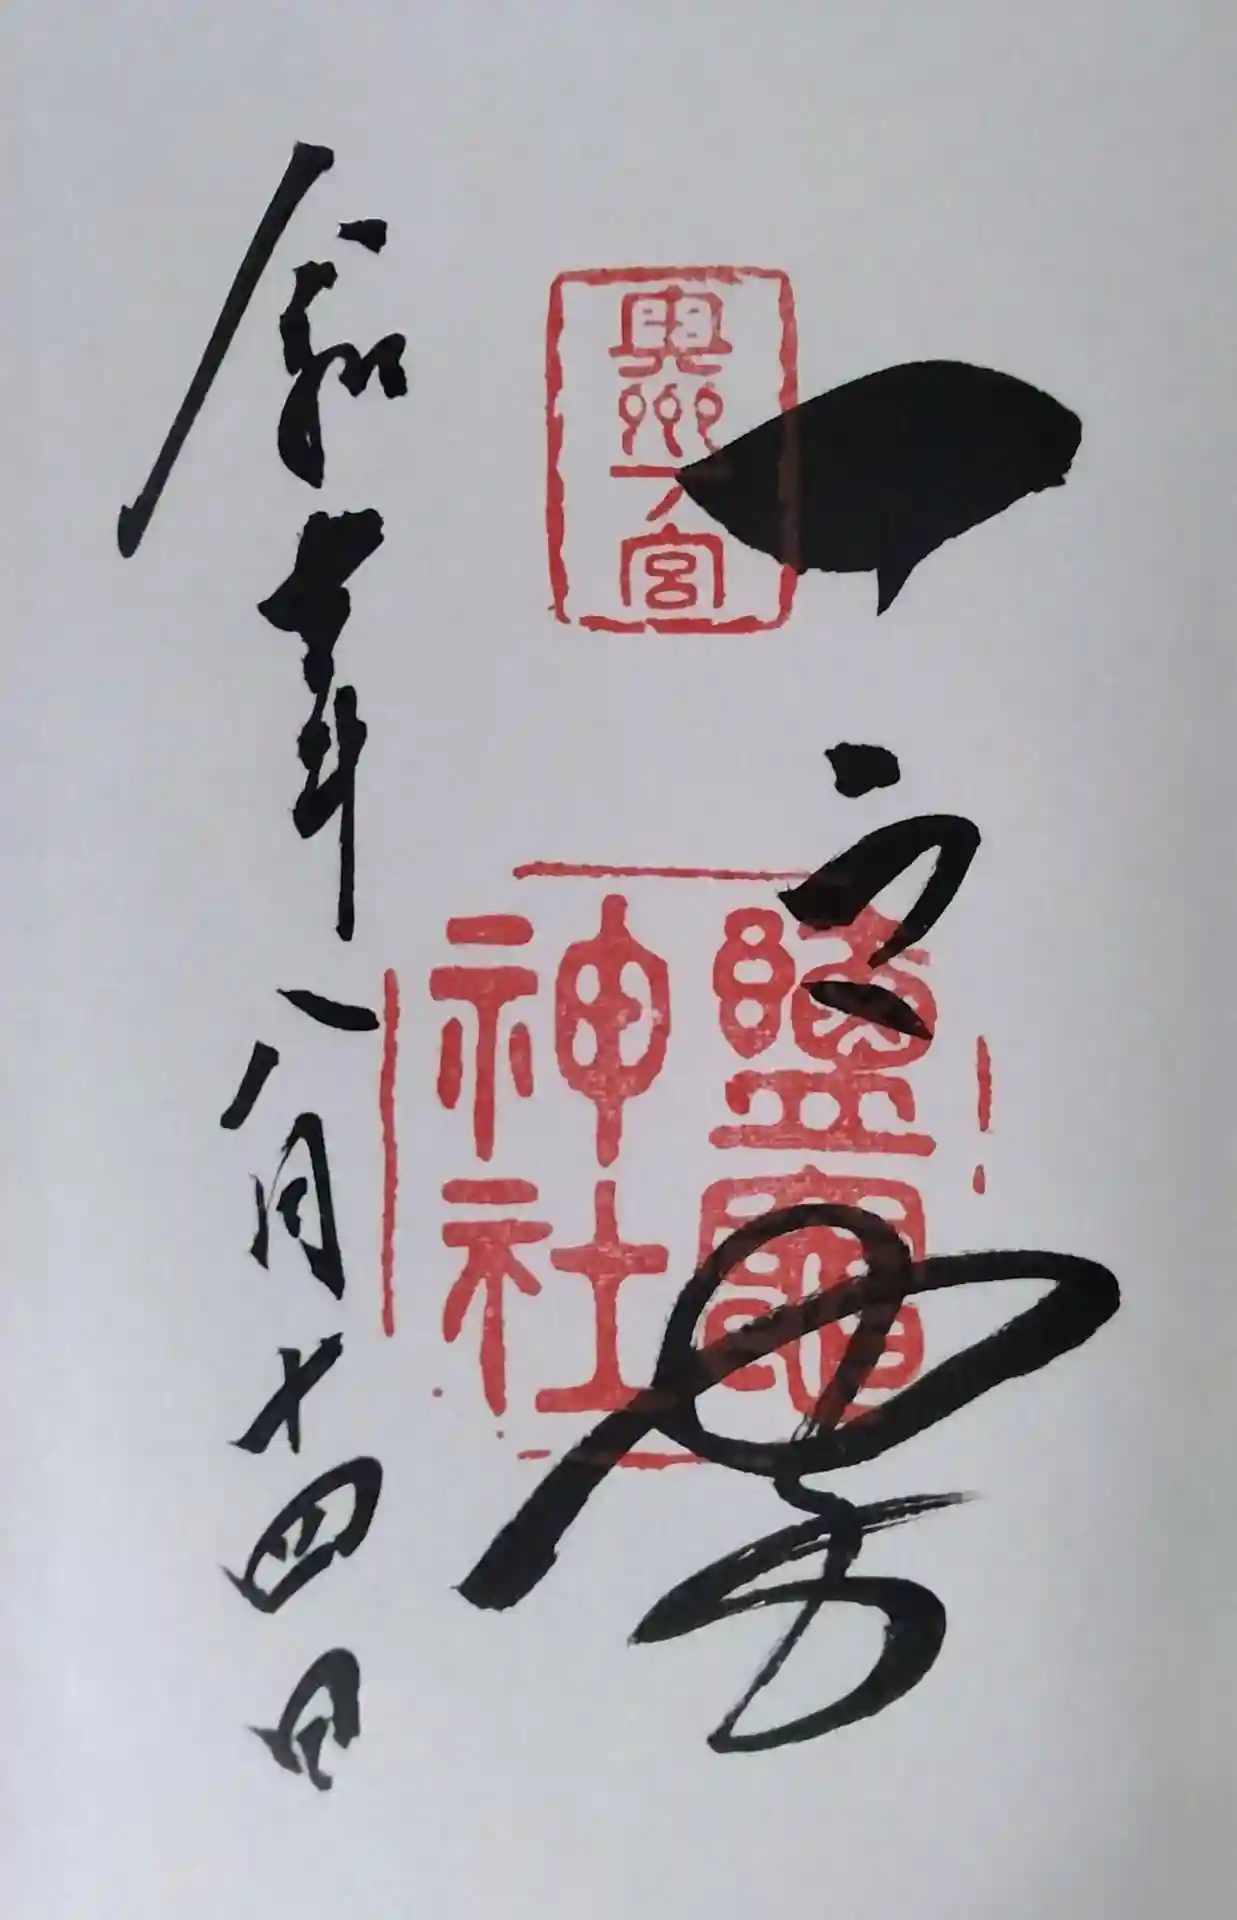 奥州一宮
鹽竈
神社
一之
令和年八月十四日